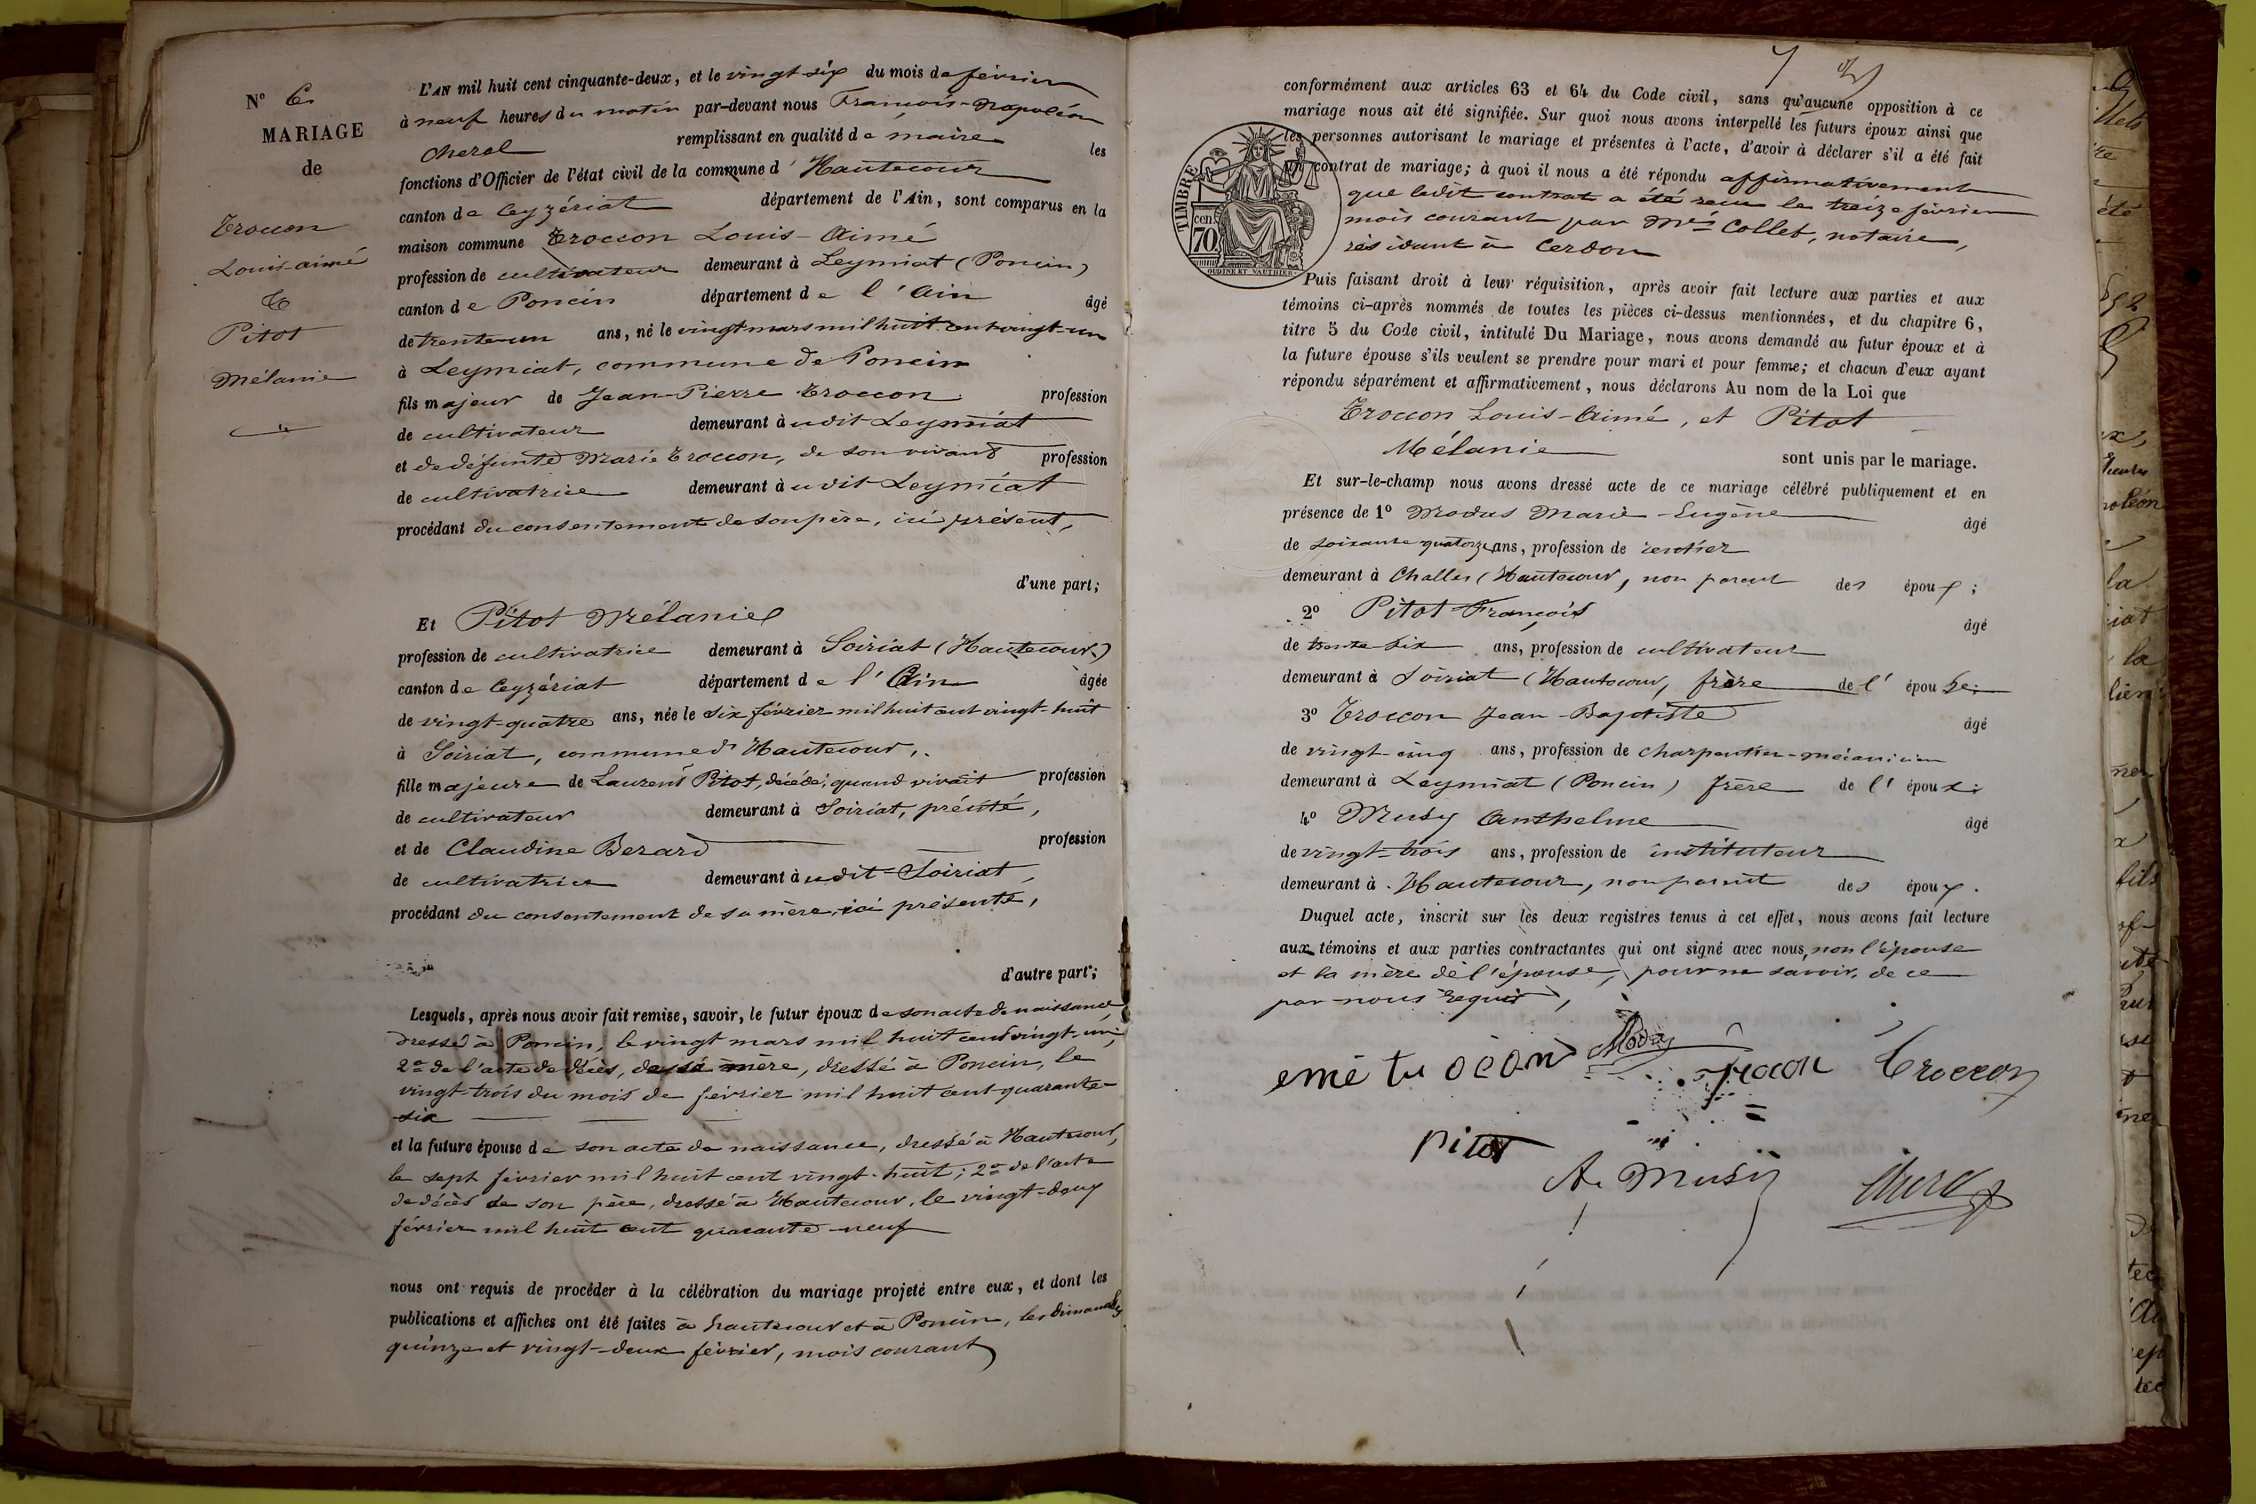 N° 6.
MARIAGE
de
Troccon
Louis-aimé
&
Pitot
Mélanie
L'AN mil huit cent cinquante-deux, et le vingt-six du mois de février
à neuf heures du matin par-devant nous François-Napoléon
Cheral remplissant en qualité de maire les
fonctions d'Officier de l'état civil de la commune d'Hautecour
canton de Ceyzériat département de l'Ain, sont comparus en la
maison commune Troccon Louis-Aimé
profession de cultivateur demeurant à Leymiat (Poncin)
canton de Poncin département de l'Ain âgé
de trente-un ans, né le vingt mars mil huit cent vingt-un
à Leymiat, commune de Poncin
fils majeur de Jean-Pierre Troccon profession
de cultivateur demeurant à udit Leymiat
et de défunte Marie Troccon, de son vivant profession
de cultivatrice demeurant à udit Leymiat
procédant du consentement de son père, ici présent,
d'une part;
Et Pitot Mélanie
profession de cultivatrice demeurant à Soiriat (Hautecour)
canton de Ceyzériat département de l'Ain âgée
de vingt-quatre ans, née le six février mil huit cent vingt-huit
à Soiriat, commune d'Hautecour,
fille majeure de Laurent Pitot, décédé; quand vivait profession
de cultivateur demeurant à Soiriat, précité,
et de Claudine Berard profession
de cultivatrice demeurant à udit Soiriat,
procédant du consentement de sa mère, ici présente,
d'autre part;
Lesquels, après nous avoir fait remise, savoir, le futur époux de son acte de naissance
dressé à Poncin, le vingt mars mil huit cent vingt-un;
2° de l'acte de décès, de sa mère, dressé à Poncin, le
vingt-trois du mois de février mil huit cent quarante-
six
et la future épouse de son acte de naissance, dressé à Hautecour,
le sept février mil huit cent vingt-huit; 2° de l'acte
de décès de son père, dressé à Hautecour, le vingt-deux
février mil huit cent quarante-neuf
nous ont requis de procéder à la célébration du mariage projeté entre eux, et dont les
publications et affiches ont été faites à hautecour et à Poncin, les dimanches
quinze et vingt-deux février, mois courant
7
conformément aux articles 63 et 64 du Code civil, sans qu'aucune opposition à ce
mariage nous ait été signifiée. Sur quoi nous avons interpellé les futurs époux ainsi que
les personnes autorisant le mariage et présentes à l'acte, d'avoir à déclarer s'il a été fait
un contrat de mariage; à quoi il nous a été répondu affirmativement
que ledit contrat a été reçu le treize février
mois courant par Mre Collet, notaire,
résidant à Cerdon
TIMBRE
cen.
70
OUDINE ET VAUTHIER
Puis faisant droit à leur réquisition, après avoir fait lecture aux parties et aux
témoins ci-après nommés de toutes les pièces ci-dessus mentionnées, et du chapitre 6,
titre 5 du Code civil, intitulé Du Mariage, nous avons demandé au futur époux et à
la future épouse s'ils veulent se prendre pour mari et pour femme; et chacun d'eux ayant
répondu séparément et affirmativement, nous déclarons Au nom de la Loi que
Troccon Louis-Aimé, et Pitot
Mélanie sont unis par le mariage.
Et sur-le-champ nous avons dressé acte de ce mariage célébré publiquement et en
présence de 1° Modas Marie-Eugène âgé
de soixante-quatorze ans, profession de rentier
demeurant à Challes (Hautecour, non parent des époux;
2° Pitot François âgé
de trente-six ans, profession de cultivateur
demeurant à Soiriat (Hautecour, frère de l'épouse;
3° Troccon Jean-Baptiste âgé
de vingt-cinq ans, profession de charpentier-mécanicien
demeurant à Leymiat (Poncin) frère de l'époux;
4° Musy Anthelme âgé
de vingt-trois ans, profession de instituteur
demeurant à Hautecour, non parent des époux.
Duquel acte, inscrit sur les deux registres tenus à cet effet, nous avons fait lecture
aux témoins et aux parties contractantes qui ont signé avec nous, non l'épouse
et la mère de l'épouse, pour ne savoir, de ce
par nous requis,
Troccon
Pitot
A. Musy